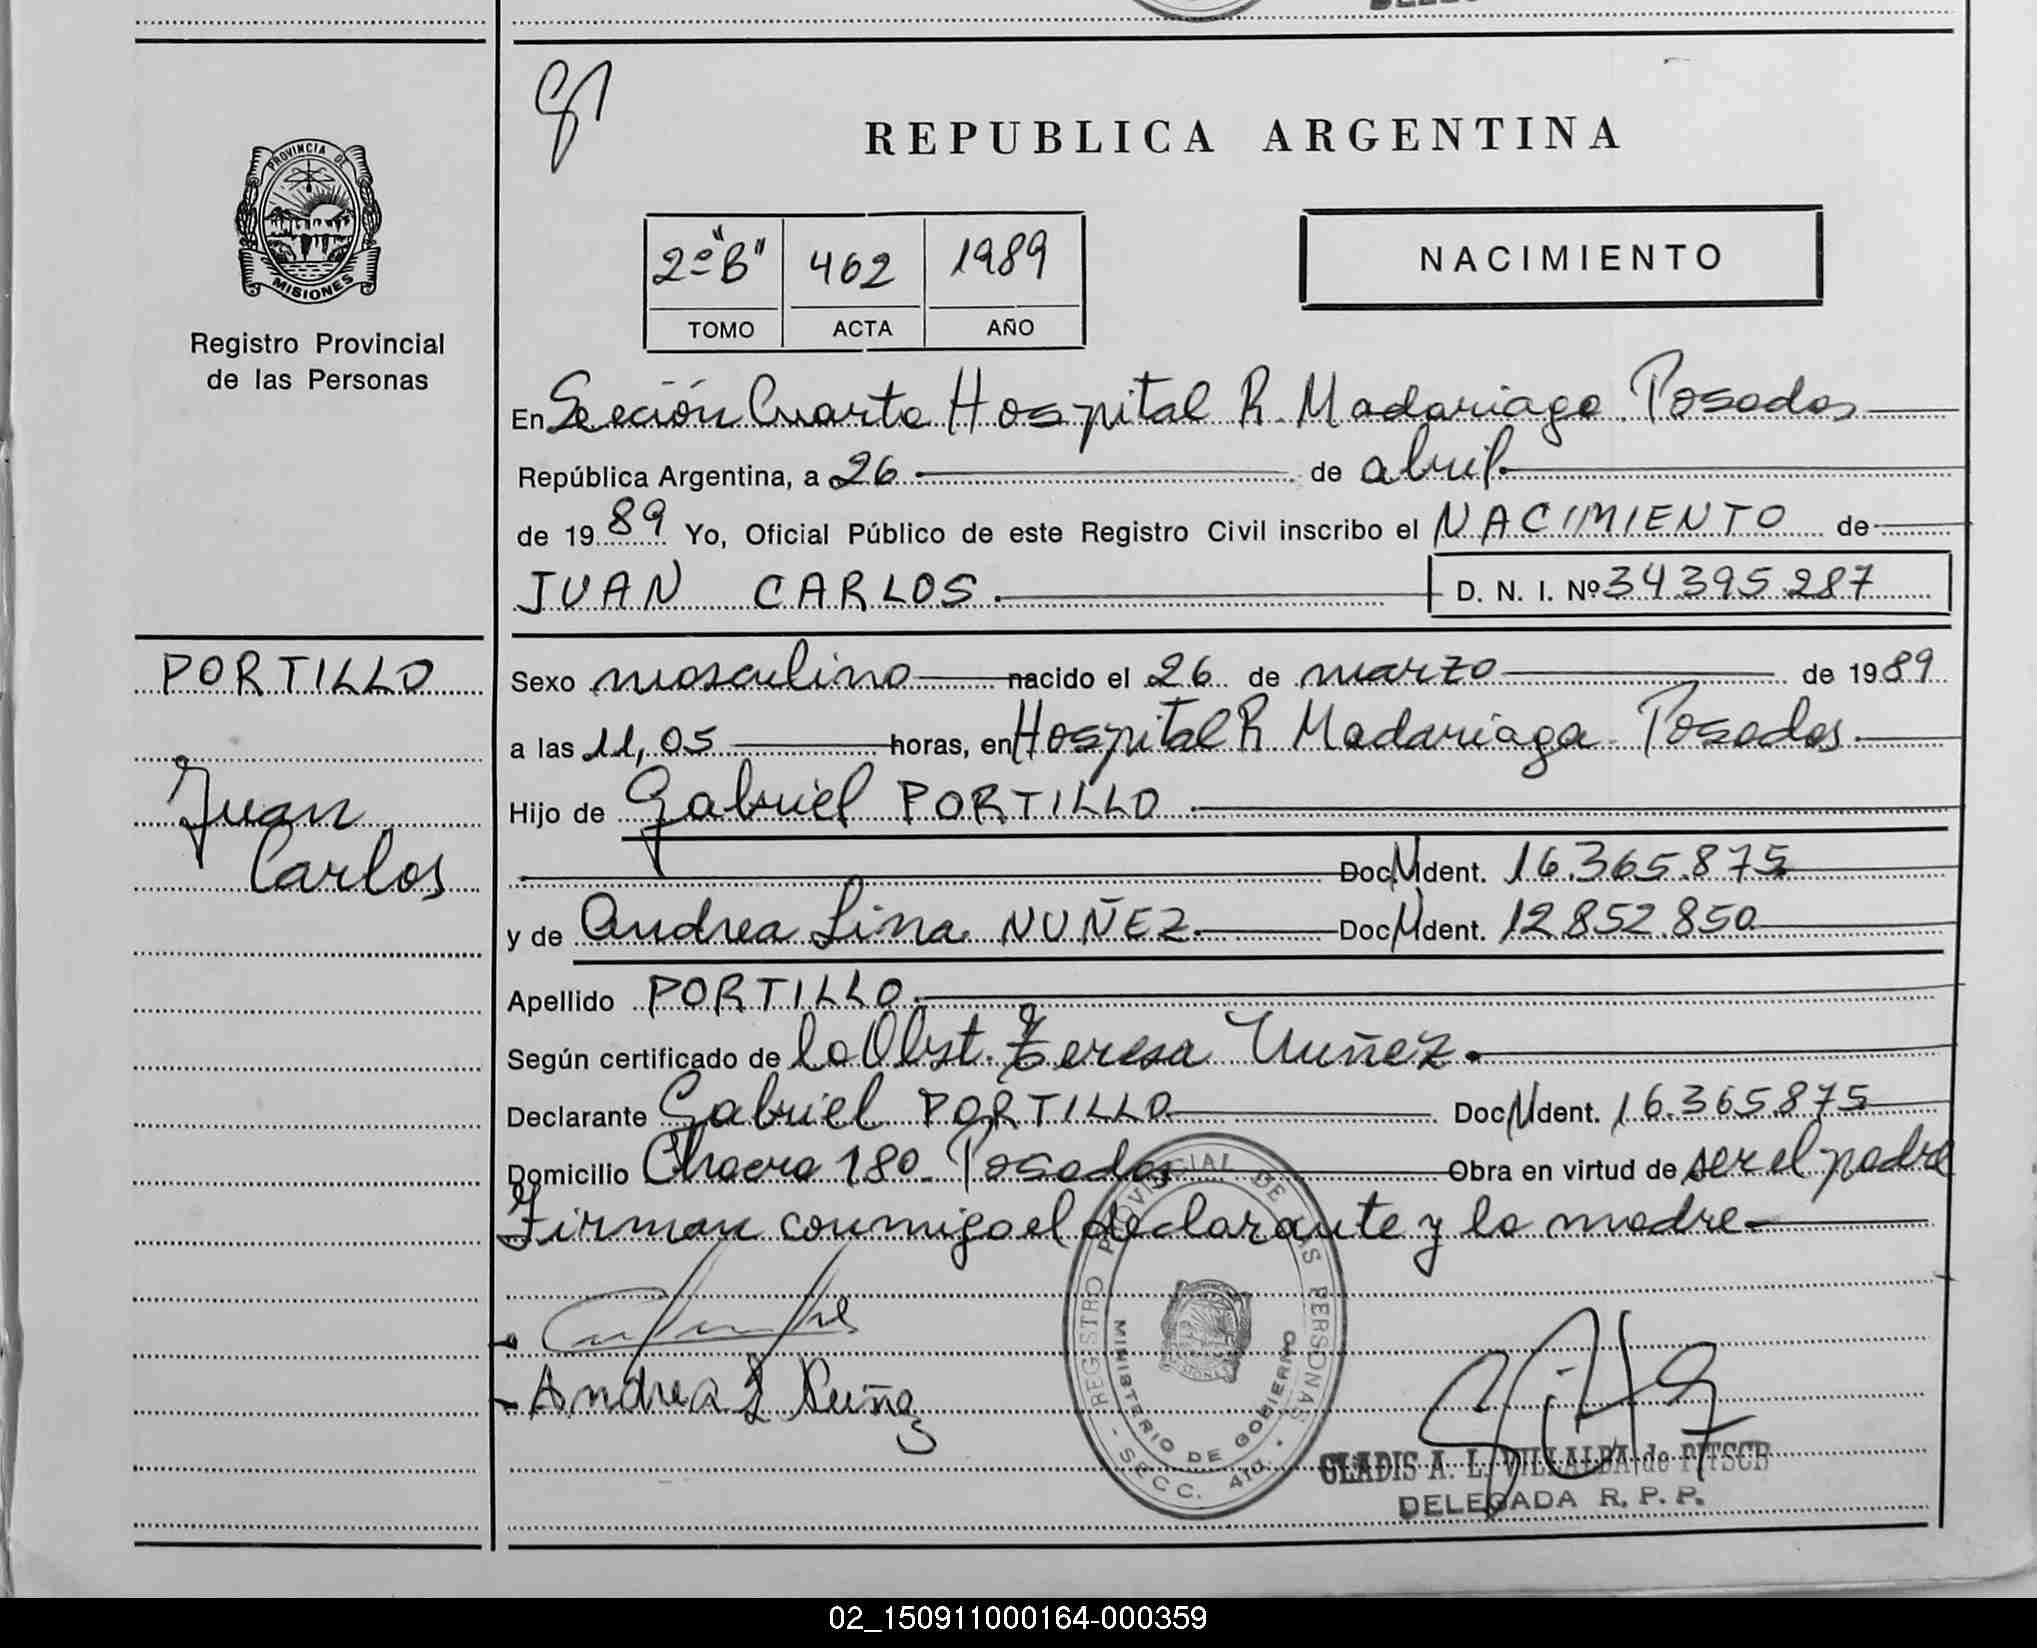 REPUBLICA ARGENTINA
PROVINCIA DE
MISIONES
Registro Provincial
de las Personas
2º "B" 462 1989
TOMO ACTA AÑO
NACIMIENTO
En Sección Cuarta Hospital R. Madariaga Posadas
República Argentina, a 26 de abril
de 1989 Yo, Oficial Público de este Registro Civil inscribo el NACIMIENTO de
JUAN CARLOS. D. N. I. Nº 34.395.287
PORTILLO
Juan
Carlos
Sexo masculino nacido el 26 de marzo de 1989
a las 11,05 horas, en Hospital R Madariaga Posadas.
Hijo de Gabriel PORTILLO
Doc. Ident. 16.365.875
y de Andrea Lina NUÑEZ. Doc. Ident. 12.852.850
Apellido PORTILLO.
Según certificado de la Obst. Teresa Nuñez.
Declarante Gabriel PORTILLO Doc. Ident. 16.365.875
Domicilio Chacra 180 Posadas Obra en virtud de ser el padre
Firman conmigo el declarante y la madre
Andrea L Nuñez
REGISTRO PROVINCIAL DE LAS PERSONAS
MINISTERIO DE GOBIERNO
SECC. 4ta.
GLADIS A. L. VILLALBA de PITSCH
DELEGADA R. P. P.
02_150911000164-000359